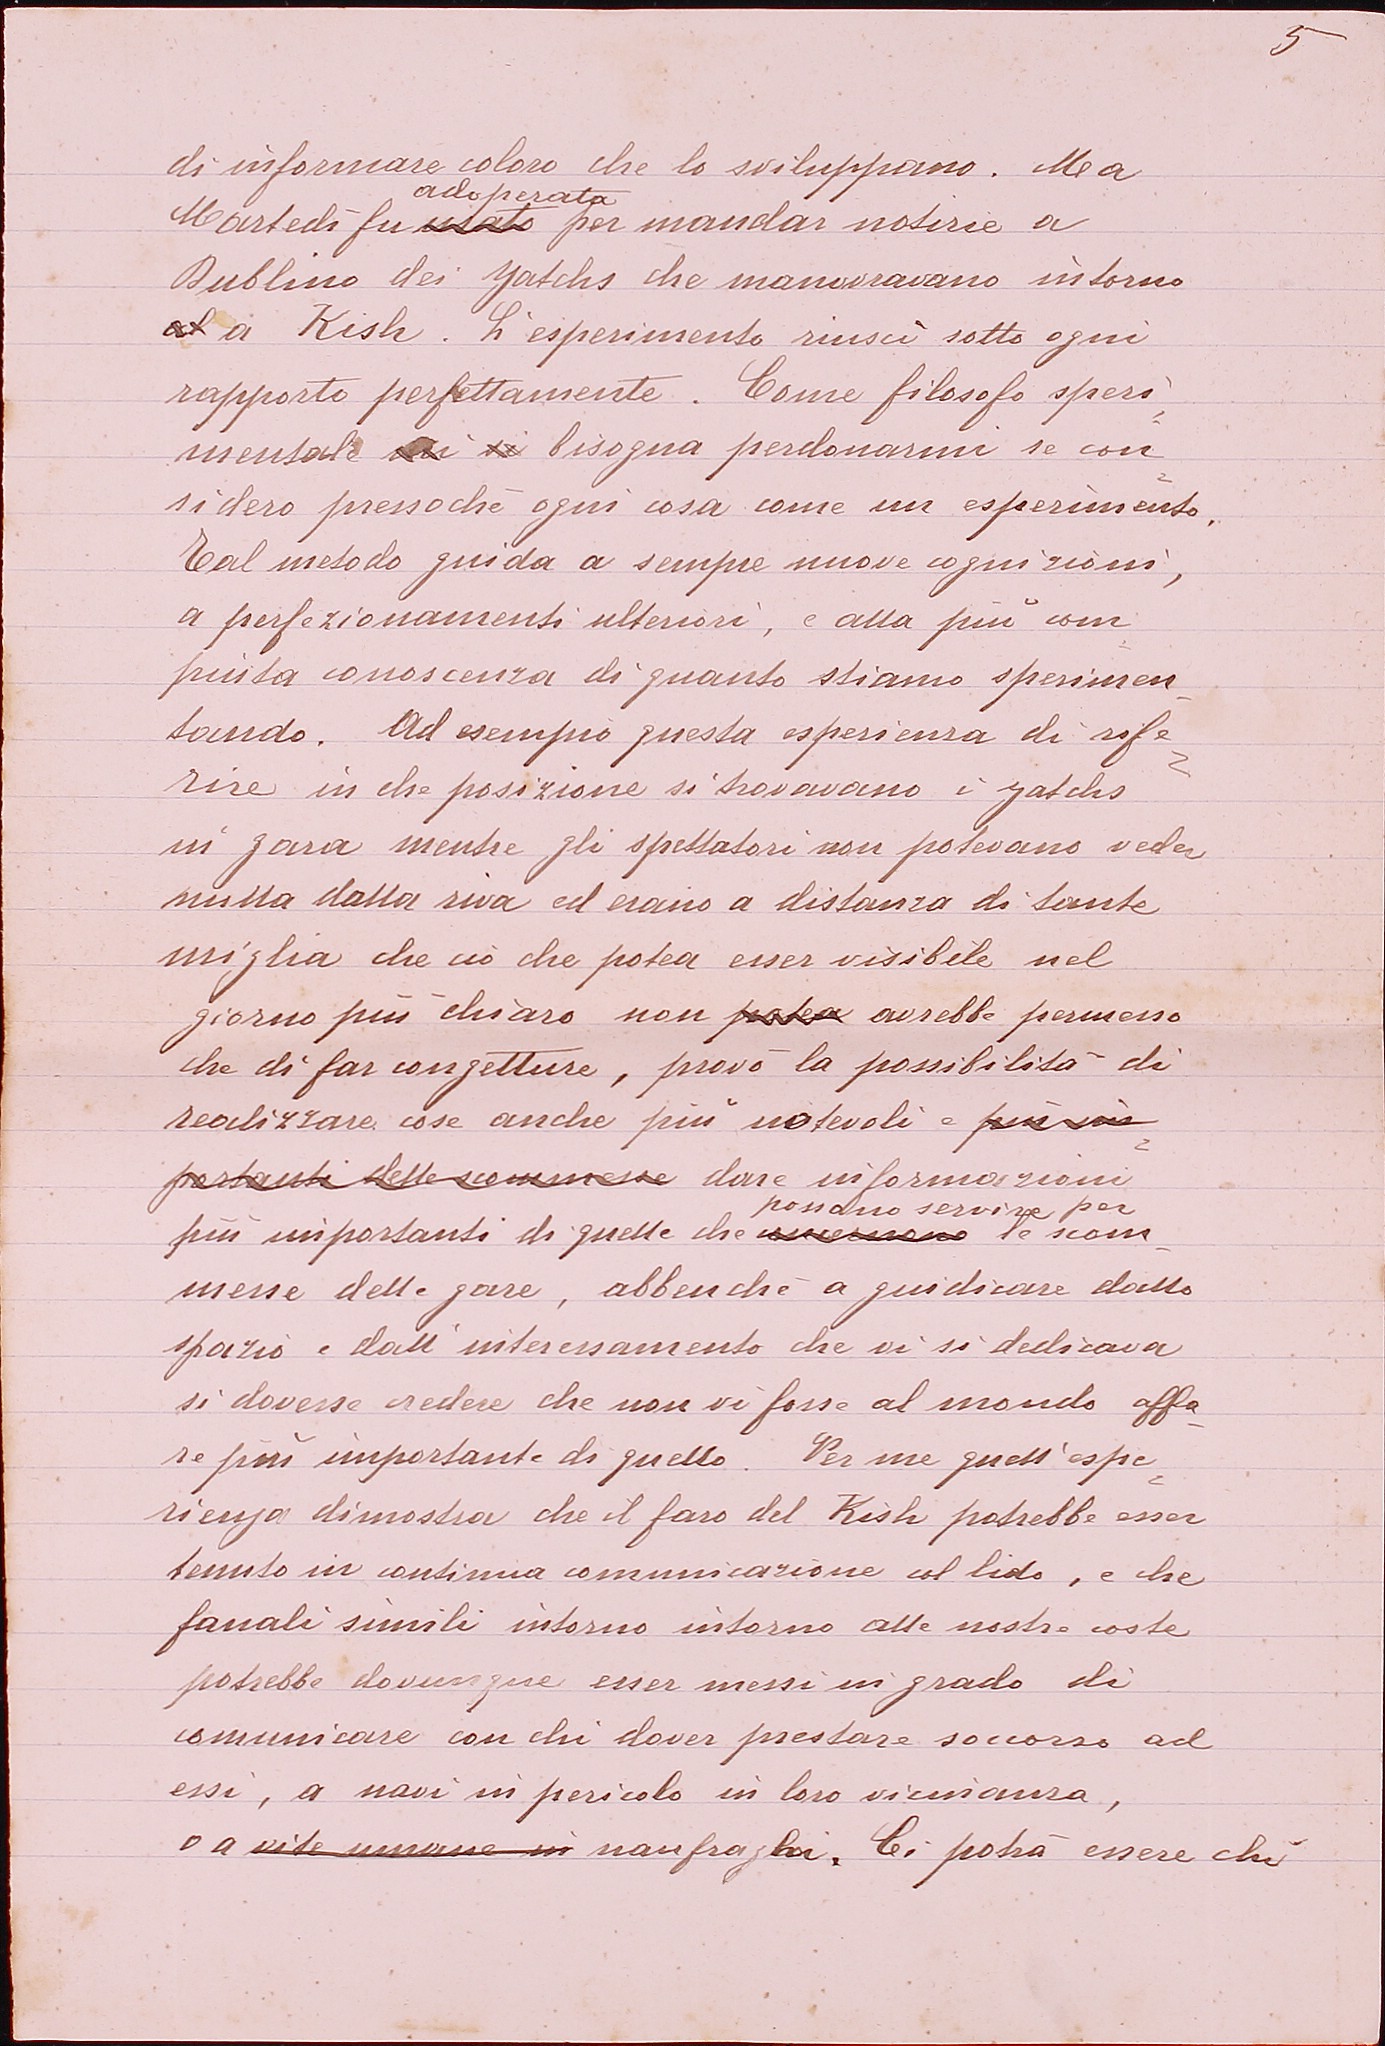 5
di informare coloro che lo sviluppano. Ma a
adoperata
Martedì fu usato per mandar notizie a
Dublino dei yatchs che manovravano intorno
al a Kish. L'esperimento riuscì sotto ogni
rapporto perfettamente. Come filosofo speri-
mentale mi si bisogna perdonarmi se con-
sidero pressochè ogni cosa come un esperimento.
Tal metodo guida a sempre nuove cognizioni,
a perfezionamenti ulteriori, e alla più com-
piuta conoscenza di quanto stiamo sperimen-
tando. Ad esempio questa esperienza di rife-
rire in che posizione si trovavano i yatchs
in gara mentre gli spettatori non potevano veder
nulla dalla riva ed erano a distanza di tante
miglia che ciò che potea esser visibile nel
giorno più chiaro non potea avrebbe permesso
che di far congetture, provò la possibilità di
realizzare cose anche più notevoli e più im-
portanti delle scommesse dare informazioni
possano servire per
più importanti di quelle che concernono le scom-
messe delle gare, abbenchè a guidicare dallo
spazio e dall'interessamento che vi si dedicava
si dovesse credere che non vi fosse al mondo affa-
re più importante di quello. Per me quell'espe-
rienza dimostra che il faro del Kish potrebbe esser
tenuto in continua comunicazione col lido, e che
fanali simili intorno intorno alle nostre coste
potrebbe dovunque esser messi in grado di
comunicare con chi dover prestare soccorso ad
essi, a navi in pericolo in loro vicinanza,
o a vite umane in naufraghi. Ci potrà essere chi